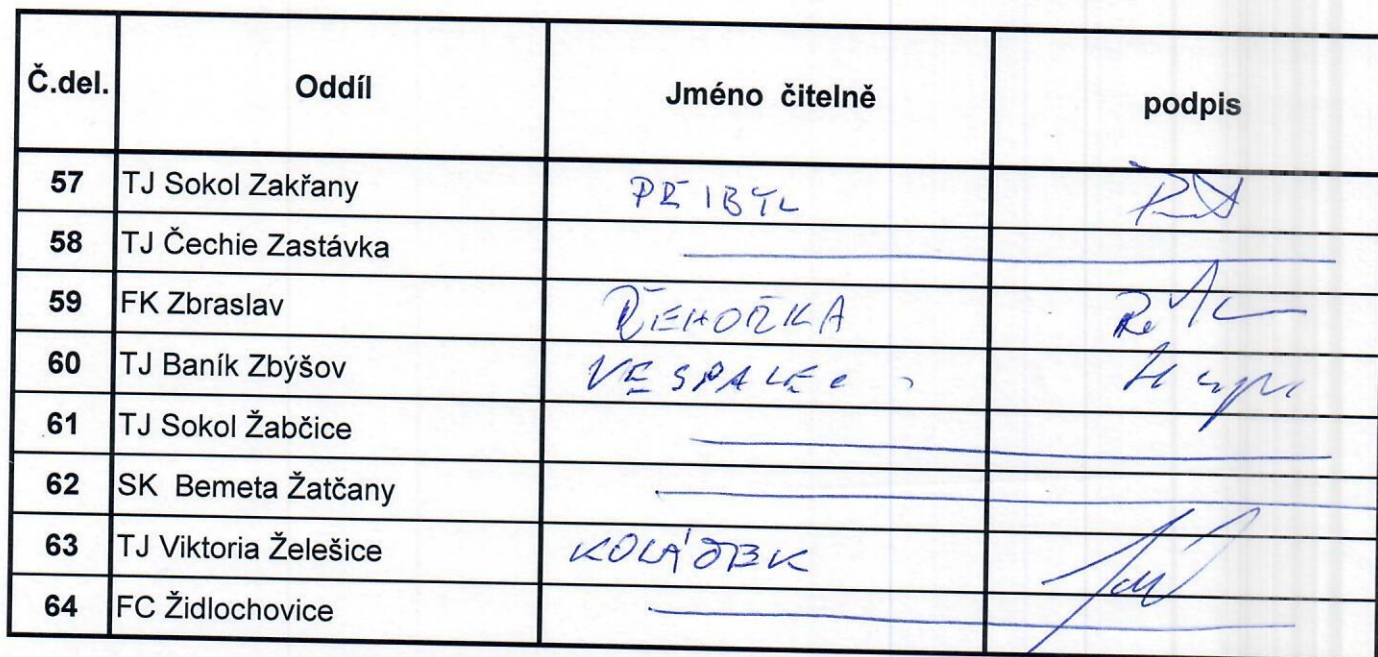 Č.del. Oddíl Jméno čitelně podpis
57 TJ Sokol Zakřany PŘIBYL
58 TJ Čechie Zastávka
59 FK Zbraslav ŘEHOŘKA
60 TJ Baník Zbýšov VESPALEC
61 TJ Sokol Žabčice
62 SK Bemeta Žatčany
63 TJ Viktoria Želešice
64 FC Židlochovice